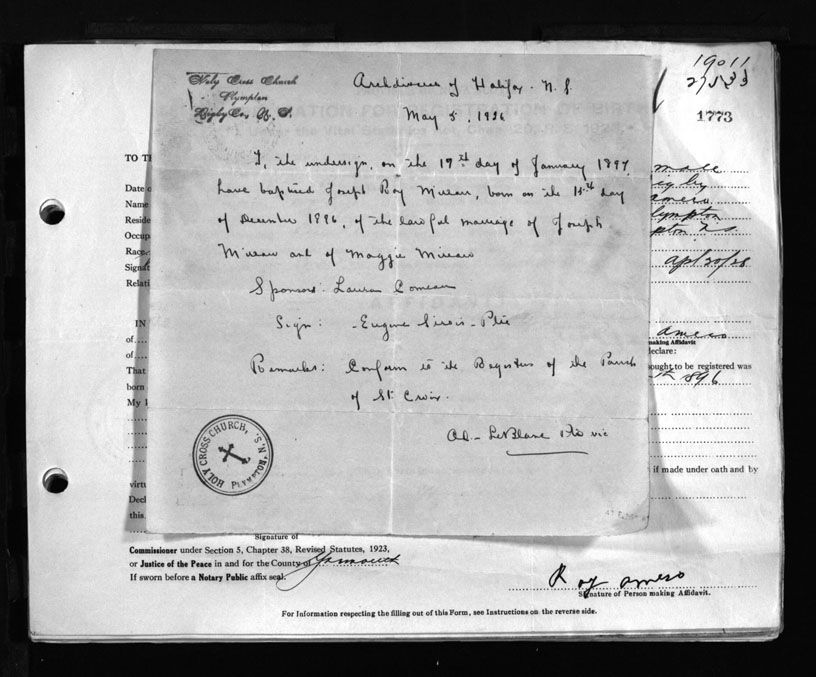 Holy Cross Church
Plympton
Digby Co. N. S.
Archdiocese of Halifax. N. S.
May 5, 1936
I, the undersign, on the 19th day of January 1897
have baptised Joseph Roy Mireau, born on the 15th day
of December 1896, of the lawful marriage of Joseph
Mireau and of Maggie Mireau
Sponsors: Comeau
Sign: Eugene Sirois Ptre
Remarks: Conform to the Registers of the Parish
of St Croix.
Ad. LeBlanc
HOLY CROSS CHURCH, PLYMPTON, N.S.
19011
1773
TO TH
Date o
Name
Reside
Occup
Race
Signat
Relati
IN
of
of
That
born
My l
virtu
Decl
this
male
lympton
ameso
making Affidavit
declare:
sought to be registered was
if made under oath and by
Signature of
Commissioner under Section 5, Chapter 38, Revised Statutes, 1923,
or Justice of the Peace in and for the County of Yarmouth
If sworn before a Notary Public affix seal.
Roy ameso
Signature of Person making Affidavit.
For Information respecting the filling out of this Form, see Instructions on the reverse side.